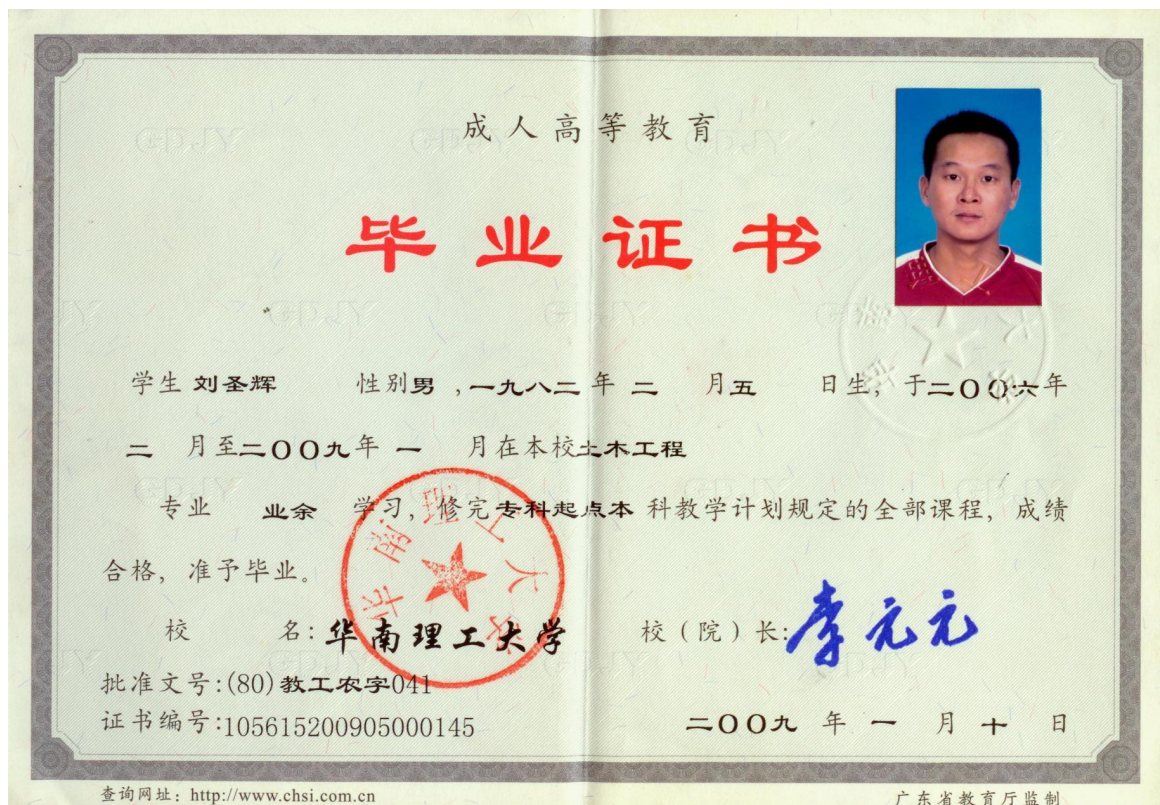 成人高等教育
毕业证书
学生 刘圣辉 性别男,一九八二年 二 月五 日生,于二〇〇六年
二 月至二〇〇九年 一 月在本校土木工程
专业 业余 学习,修完专科起点本 科教学计划规定的全部课程,成绩
合格,准予毕业。
校 名:华南理工大学 校(院)长:李元元
批准文号:(80)教工农字041
证书编号:105615200905000145 二〇〇九 年 一 月 十 日
查询网址:http://www.chsi.com.cn 广东省教育厅监制
华南理工大学
GDJY